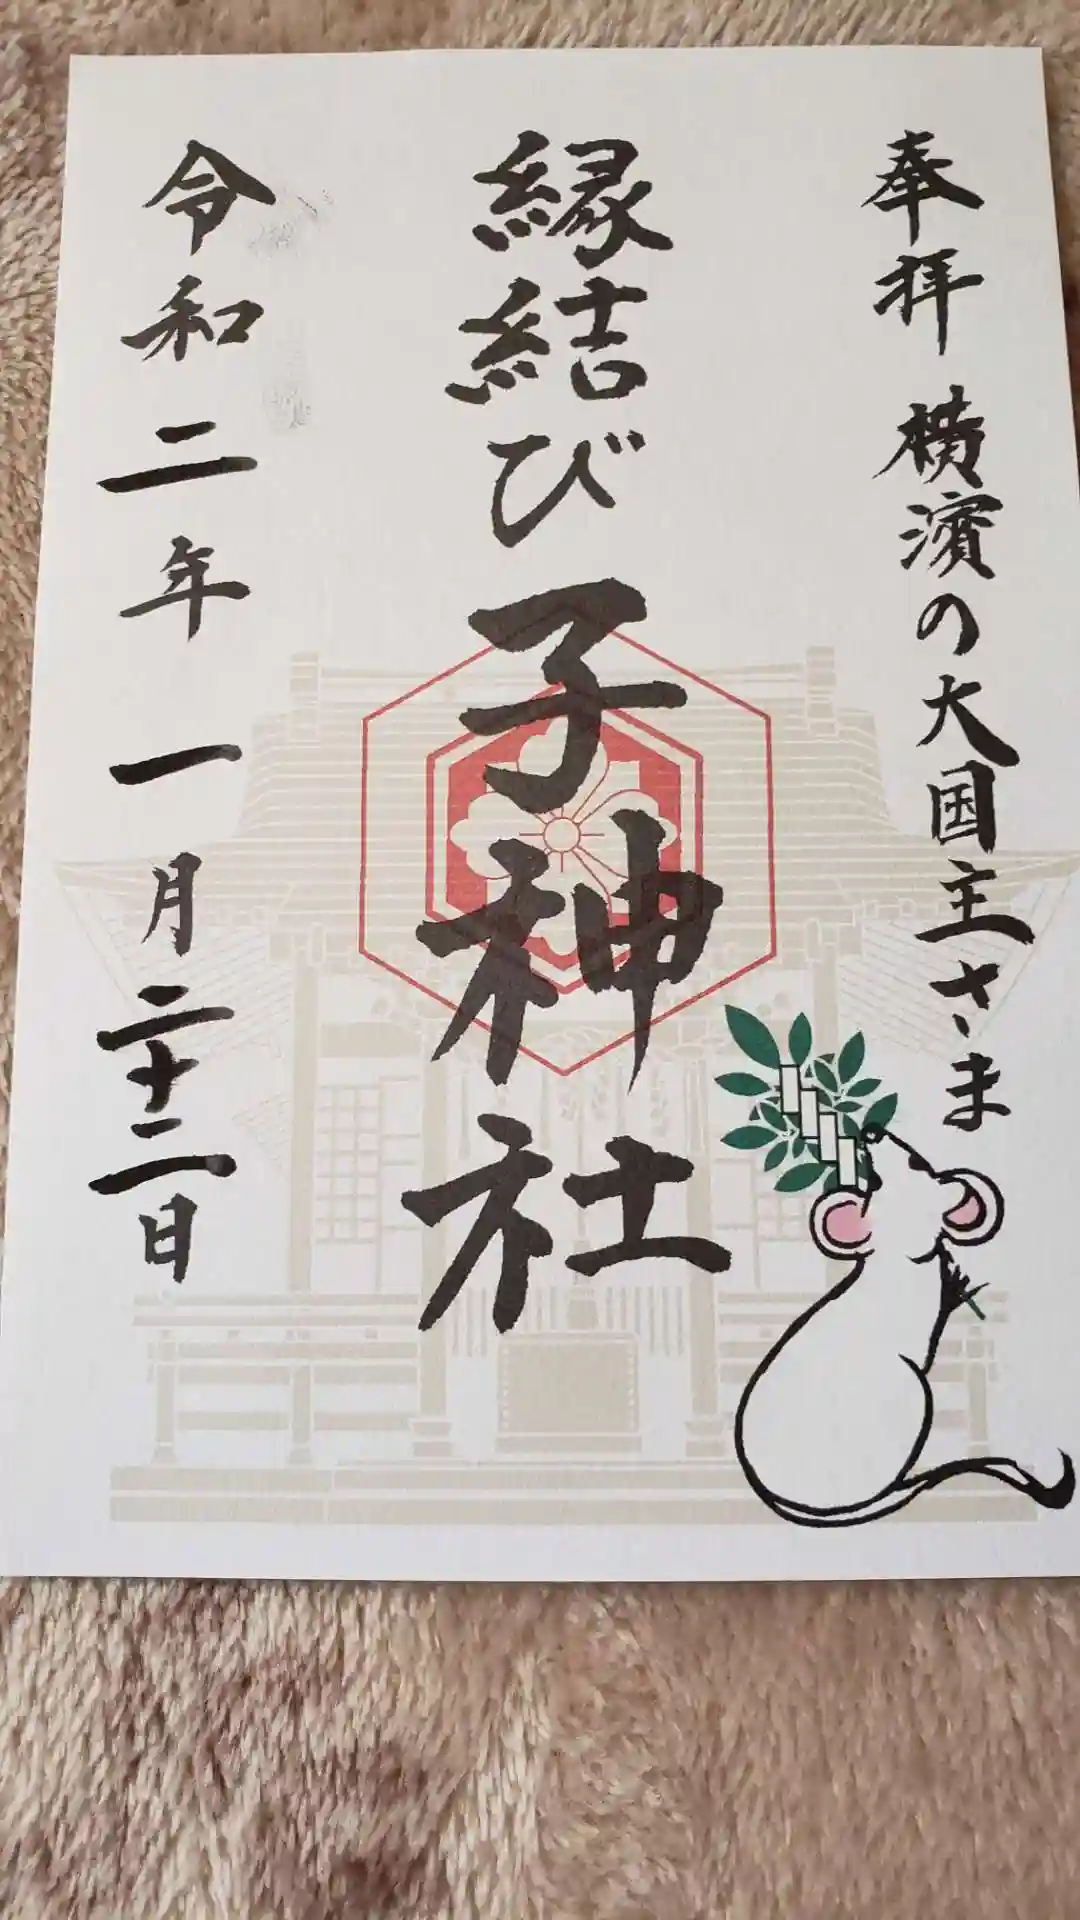 奉拝 横濱の大国主さま
縁結び 子神社
令和二年 一月二十二日